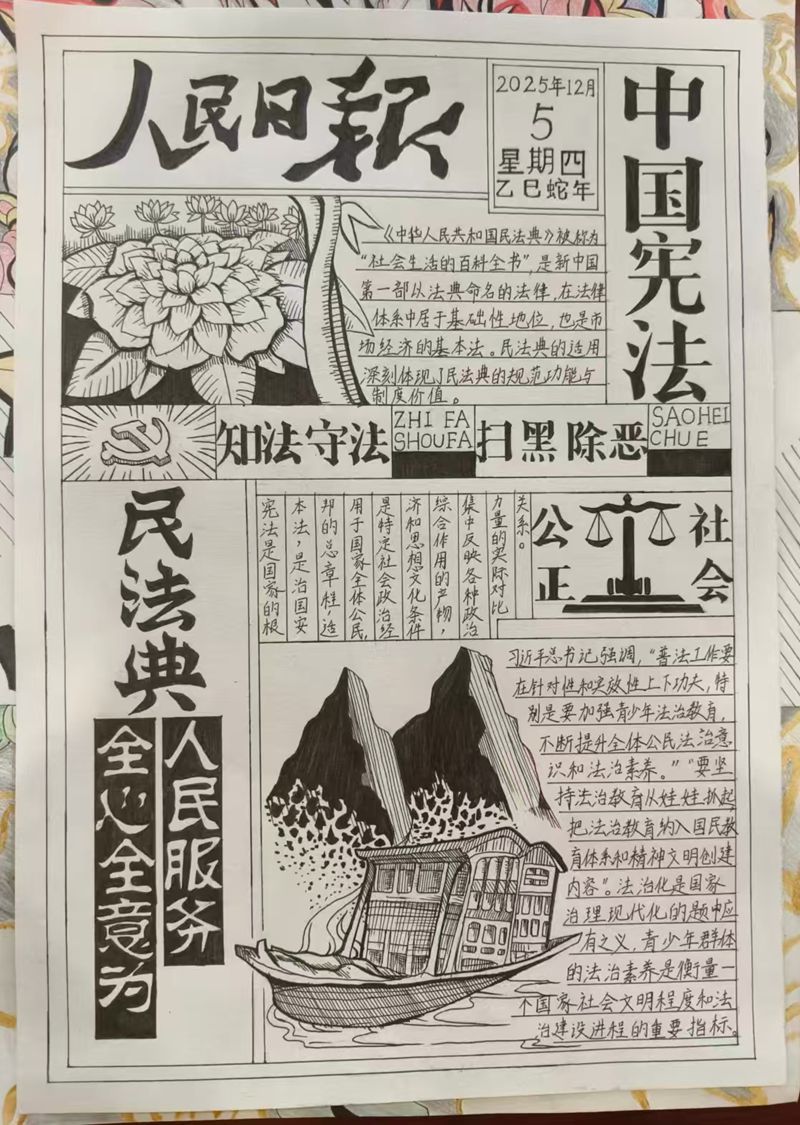 人民日报
2025年12月
5
星期四
乙巳蛇年
中国宪法
《中华人民共和国民法典》被称为
“社会生活的百科全书”，是新中国
第一部以法典命名的法律，在法律
体系中居于基础性地位，也是市
场经济的基本法。民法典的适用
深刻体现了民法典的规范功能与
制度价值。
知法守法
ZHI FA
SHOUFA
扫黑除恶
SAOHEI
CHUE
民法典
人民服务
全心全意为
关系。
力量的实际对比
集中反映各种政治
综合作用的产物，
济和思想文化条件
是特定社会政治经
用于国家全体公民，
邦的总章程，适
本法，是治国安
宪法是国家的根
公正
社会
习近平总书记强调，“普法工作要
在针对性和实效性上下功夫，特
别是要加强青少年法治教育，
不断提升全体公民法治意
识和法治素养。”“要坚
持法治教育从娃娃抓起，
把法治教育纳入国民教
育体系和精神文明创建
内容”。法治化是国家
治理现代化的题中应
有之义，青少年群体
的法治素养是衡量一
个国家社会文明程度和法
治建设进程的重要指标。